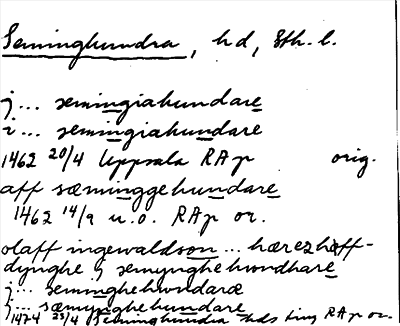 Seminghundra, hd, Sth. l.
j... semingiahundare
i... semingiahundare
1462 20/4 Uppsala RAp orig.
aff sæminggehundare
1462 14/9 u.o. RAp or.
olaff ingewaldson... hærezhøff-
dynghe j semynghehundhare
j... seminghehundaræ
j... sæmynghehundare
1474 23/4 Seminghundra hds ting RAp or.